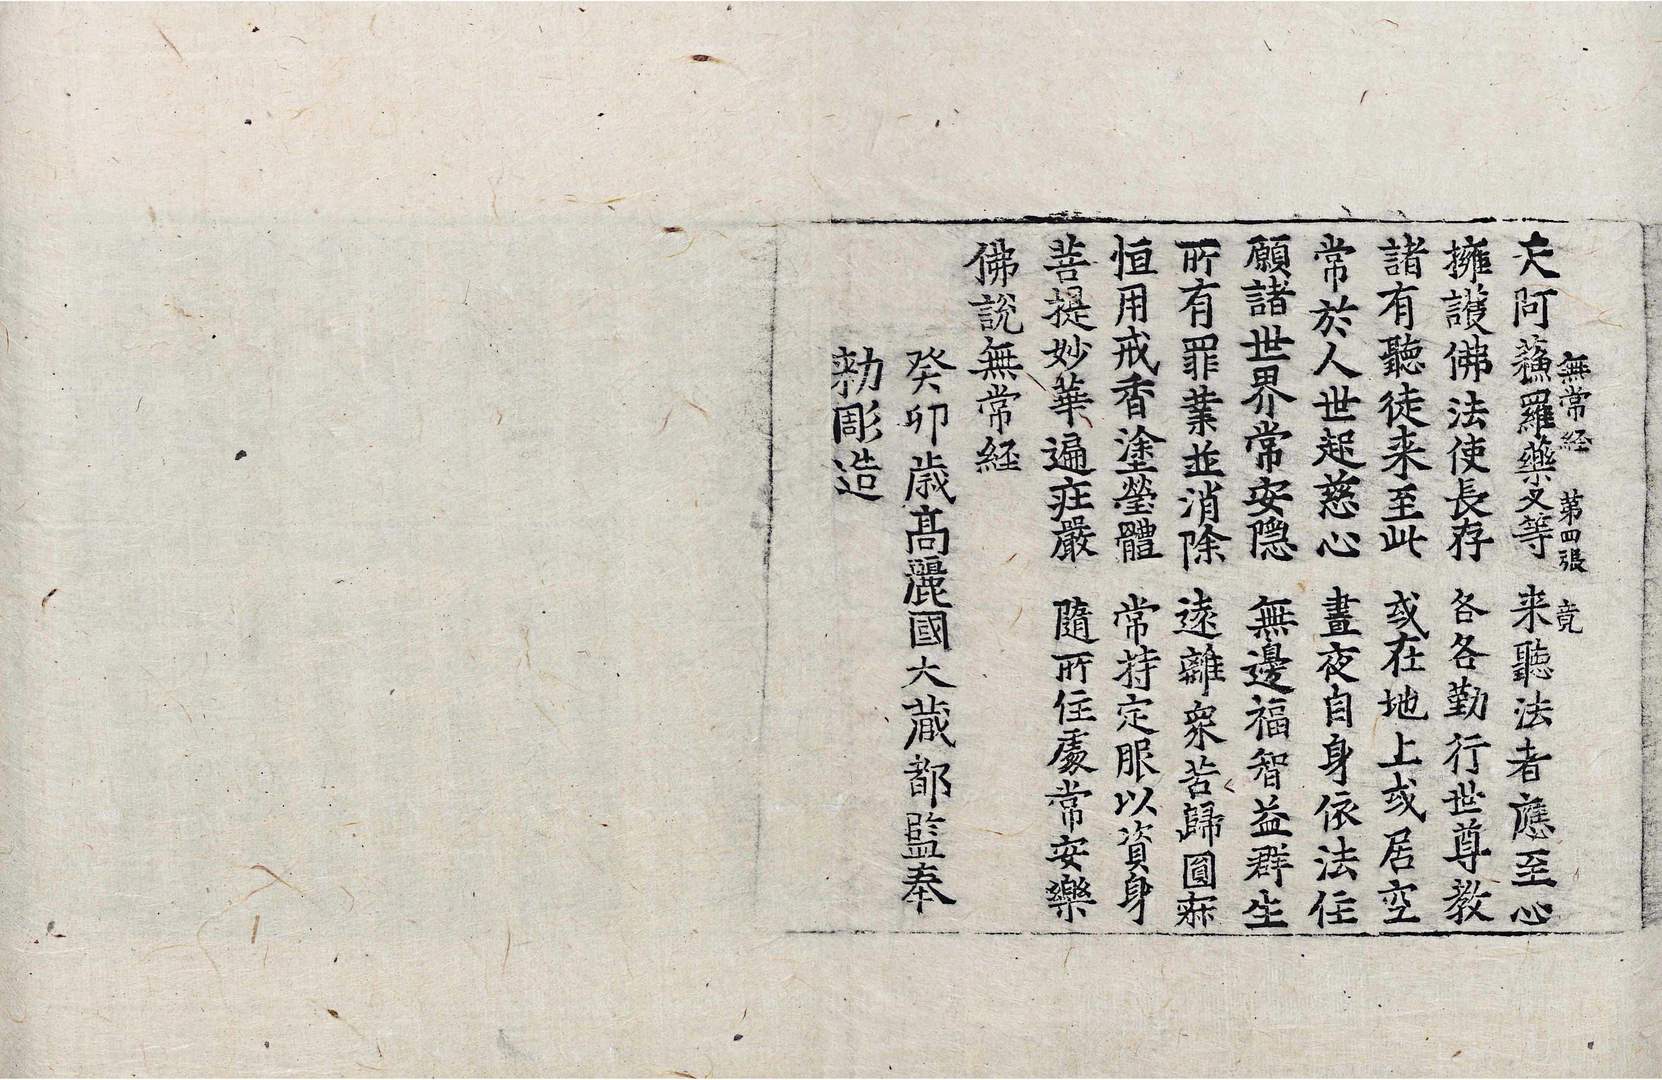 無常経 第四張 竟
天阿蘓羅藥叉等 来聽法者應至心
擁護佛法使長存 各各勤行世尊教
諸有聽徒来至此 或在地上或居空
常於人世起慈心 晝夜自身依法住
願諸世界常安隠 無邊福智益群生
所有罪業並消除 逺離衆苦歸圓寂
恒用戒香塗瑩體 常持定服以資身
菩提妙華遍莊嚴 隨所住處常安樂
佛說無常経
癸卯歳髙麗國大藏都監奉
勅彫造